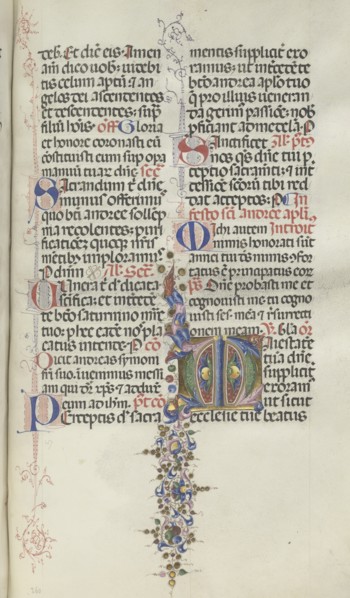 deb. Et dic̄ eis. Amen
am̄ dico uob: uidebi
tis celum aptū ⁊ an
gelos dei ascendentes
et descendentes: sup
filiū hoīs. off Gloria
et honore coronasti eū
constituisti eum sup opa
manuū tuar dn̄e
Sacrandum t dn̄e
munus offerim
quo btī andree sollēp
nia recolentes: puri
ficatiōez quoqz nr̄is
mētibz imploramus
P dn̄m
Unera t dn̄e dicata
sc̄ifica: et intēcedēte
te btō saturnino mr̄e
tuo: p hec eadē nos pla
catus intende. P
Dicit andreas symoni
frī suo. inuenimus messi
am qui dr̄ xp̄s ⁊ adduxit
eum ad ihm̄.
Perceptis dn̄e sacra
mentis suppliciter exo
ramus: ut intēcedēte
btō andrea aplō tuo
q̄ pro illius ueneran
da gerim passiōe: nob
pficiant ad medelā. P
Sanctificet
nos qs dn̄e tui p
ceptio sacramti: ⁊ in
tcessiōe scōrū tibi red
dat acceptos. P In
festo scī andree apli
Michi autem Introit
nimis honorati sūt
amici tui ds nimis 9for
tatus ē principatus eor
Dn̄e probasti me et
cognouisti me tu cogno
uisti sessiōē meā ⁊ resurrecti
onem meam. Gl̄a
Maiestatē
tuā dn̄e
suppliciter
exoram
ut sicut
ecclesie tue beatus